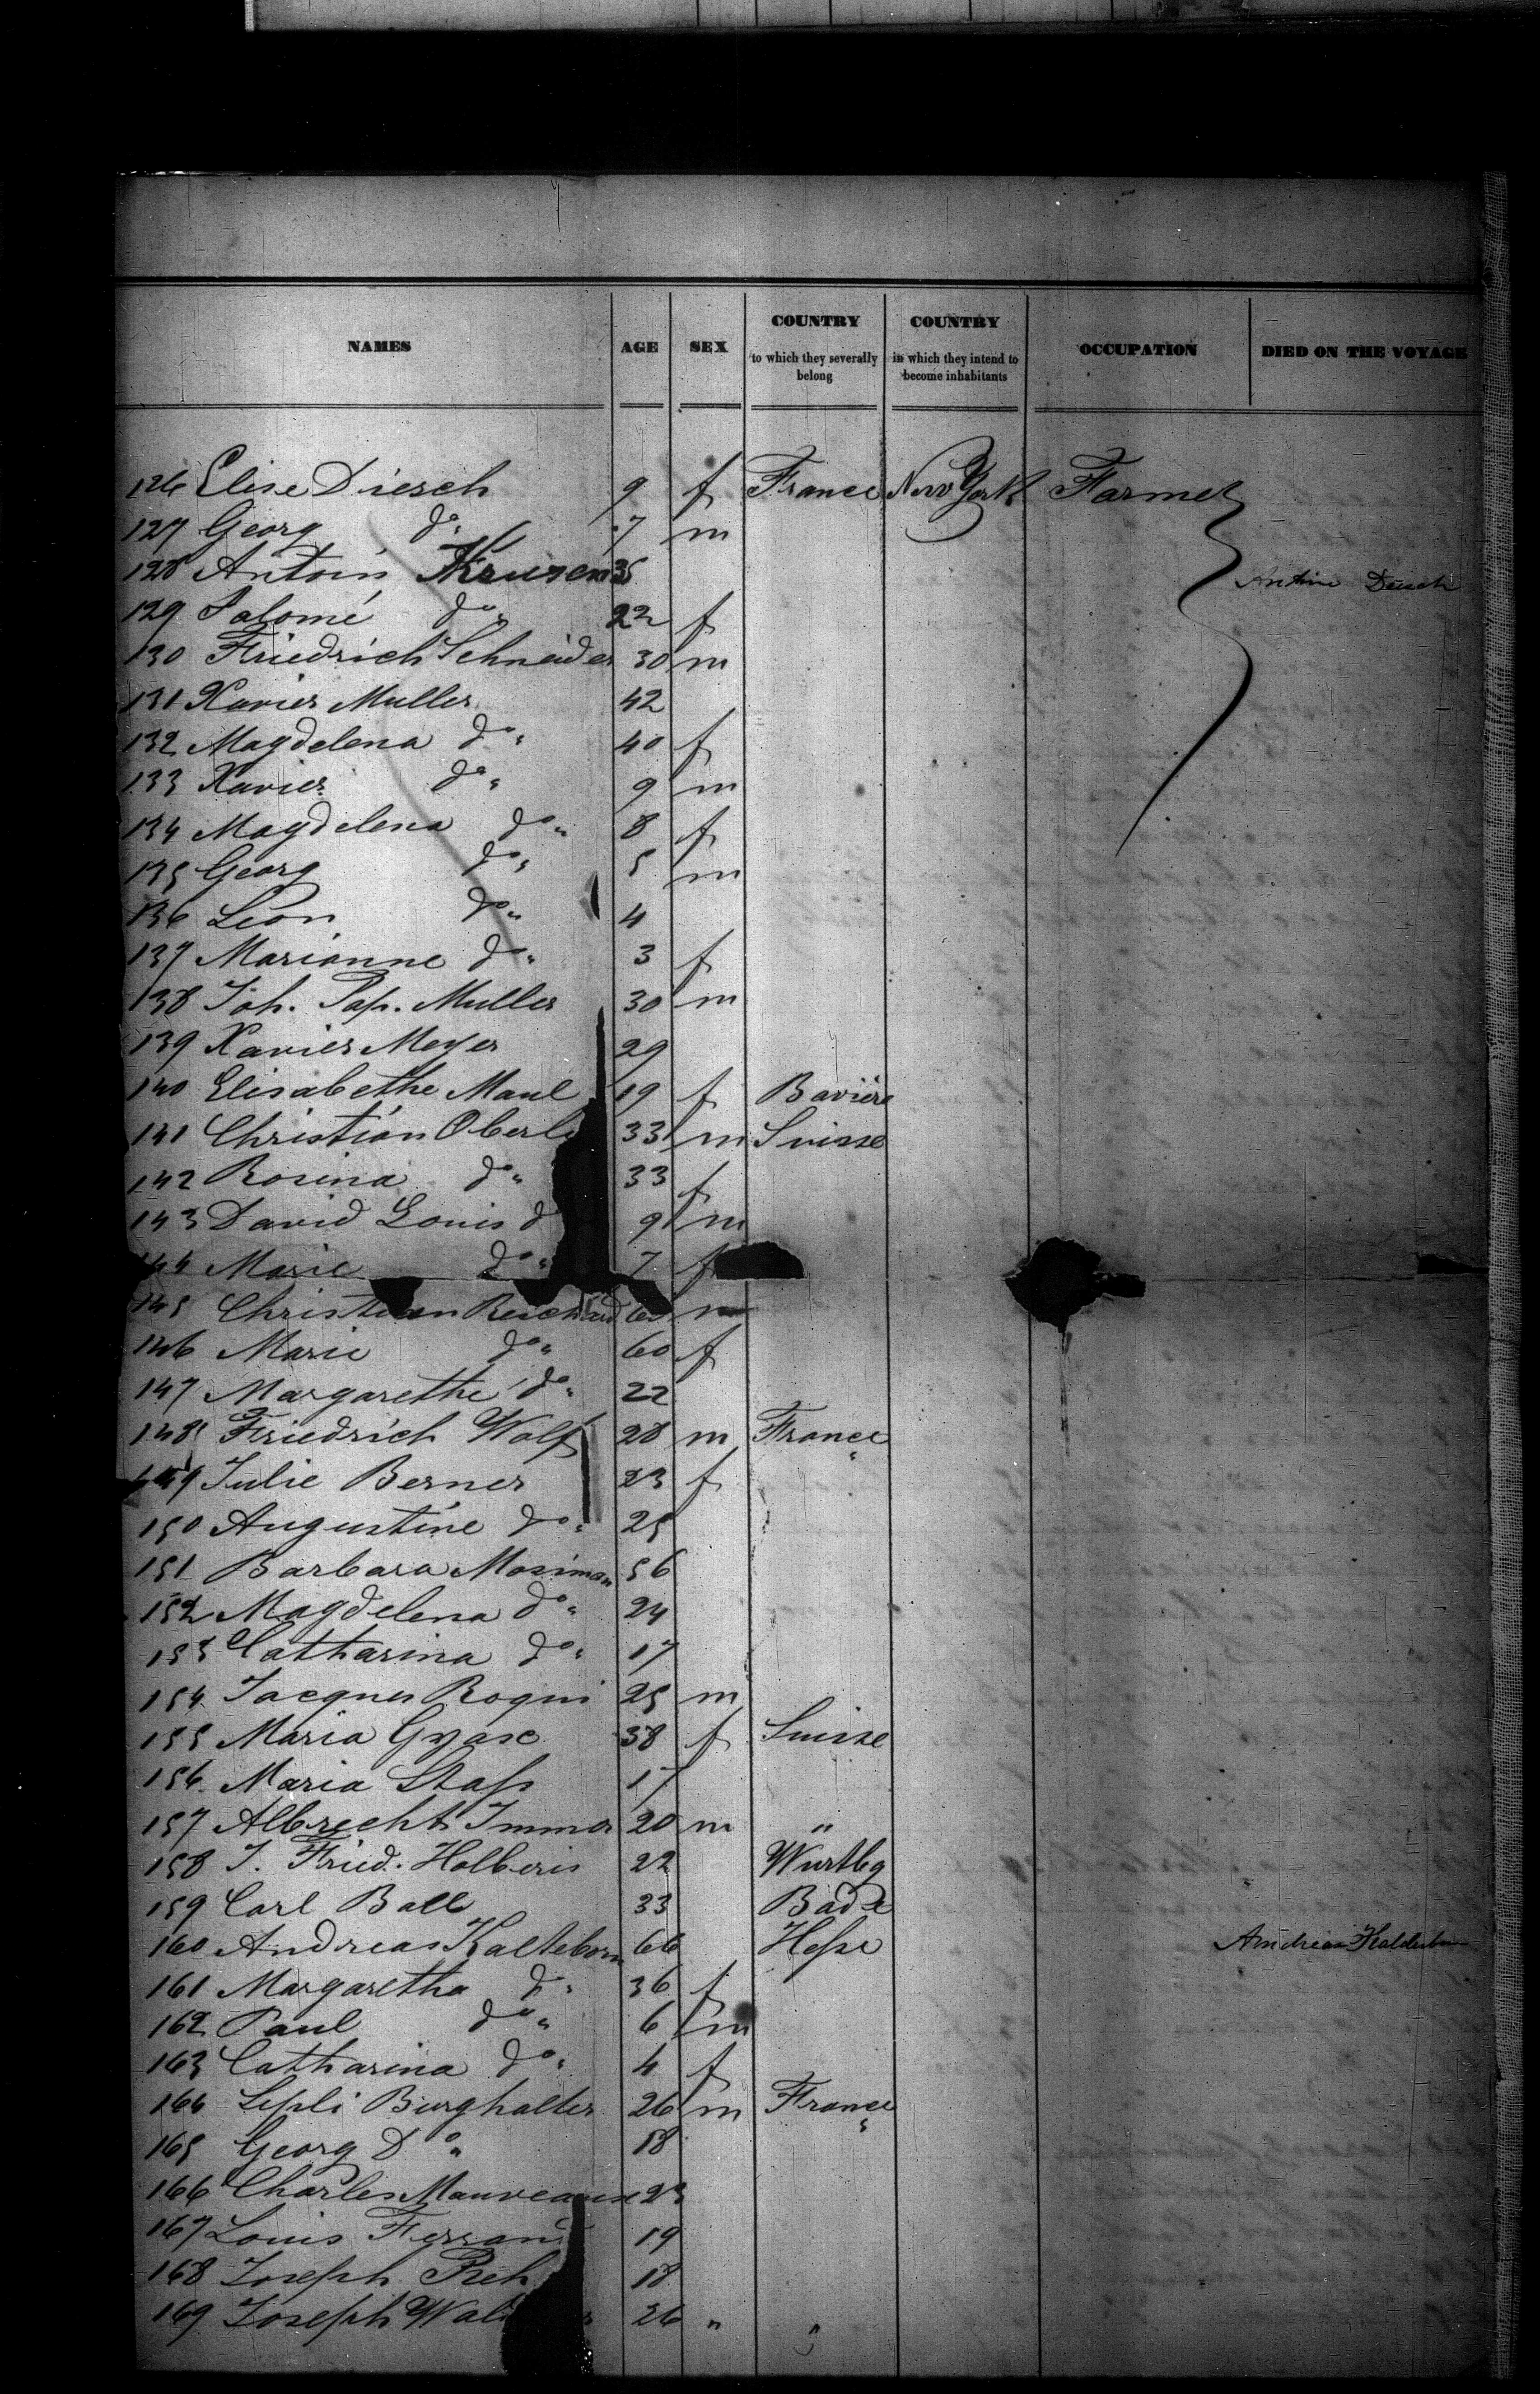 NAMES AGE SEX COUNTRY to which they severally belong COUNTRY in which they intend to become inhabitants OCCUPATION DIED ON THE VOYAGE
126 Elise Diesch 9 f France New York Farmer
127 Georg do. 7 m
128 Antoin Krusen 35 Antoine Deisch
129 Salomé do. 22 f
130 Friedrich Schneider 30 m
131 Xavier Muller 42
132 Magdelena do. 40 f
133 Xavier do. 9 m
134 Magdelena do. 8 f
135 Georg do. 5 m
136 Leon do. 4
137 Marianne do. 3 f
138 Joh. Bap. Muller 30 m
139 Xavier Meyer 29
140 Elisabethe Maul 19 f Baviére
141 Christian Oberl 33 m Suisse
142 Rosina do. 33 f
143 David Louis d 9 m
144 Marie do. 7 f
145 Christian m
146 Marie do. 60 f
147 Margarethe do. 22
148 Friedrich Wolf 28 m France
149 Julie Berner 23 f
150 Augustine do. 25
151 Barbara Mosiman 56
152 Magdelena do. 24
153 Catharina do. 17
154 Jacques Roqui 25 m
155 Maria Gyase 38 f Suisse
156 Maria Stass 17
157 Albrecht Immer 20 m "
158 J. Fried. Holberis 22 Wurtbg
159 Carl Ball 33 Bade
160 Andreas Kalteborn 66 Hesse Andreas Kaldeborn
161 Margaretha do. 36 f
162 Paul do. 6 m
163 Catharina do. 4 f
164 Sepli Burghalter 26 m France
165 Georg Do. 18
166 Charles Mauveaux 23
167 Louis Ferran 19
168 Joseph 18
169 Joseph Wal 26 " "